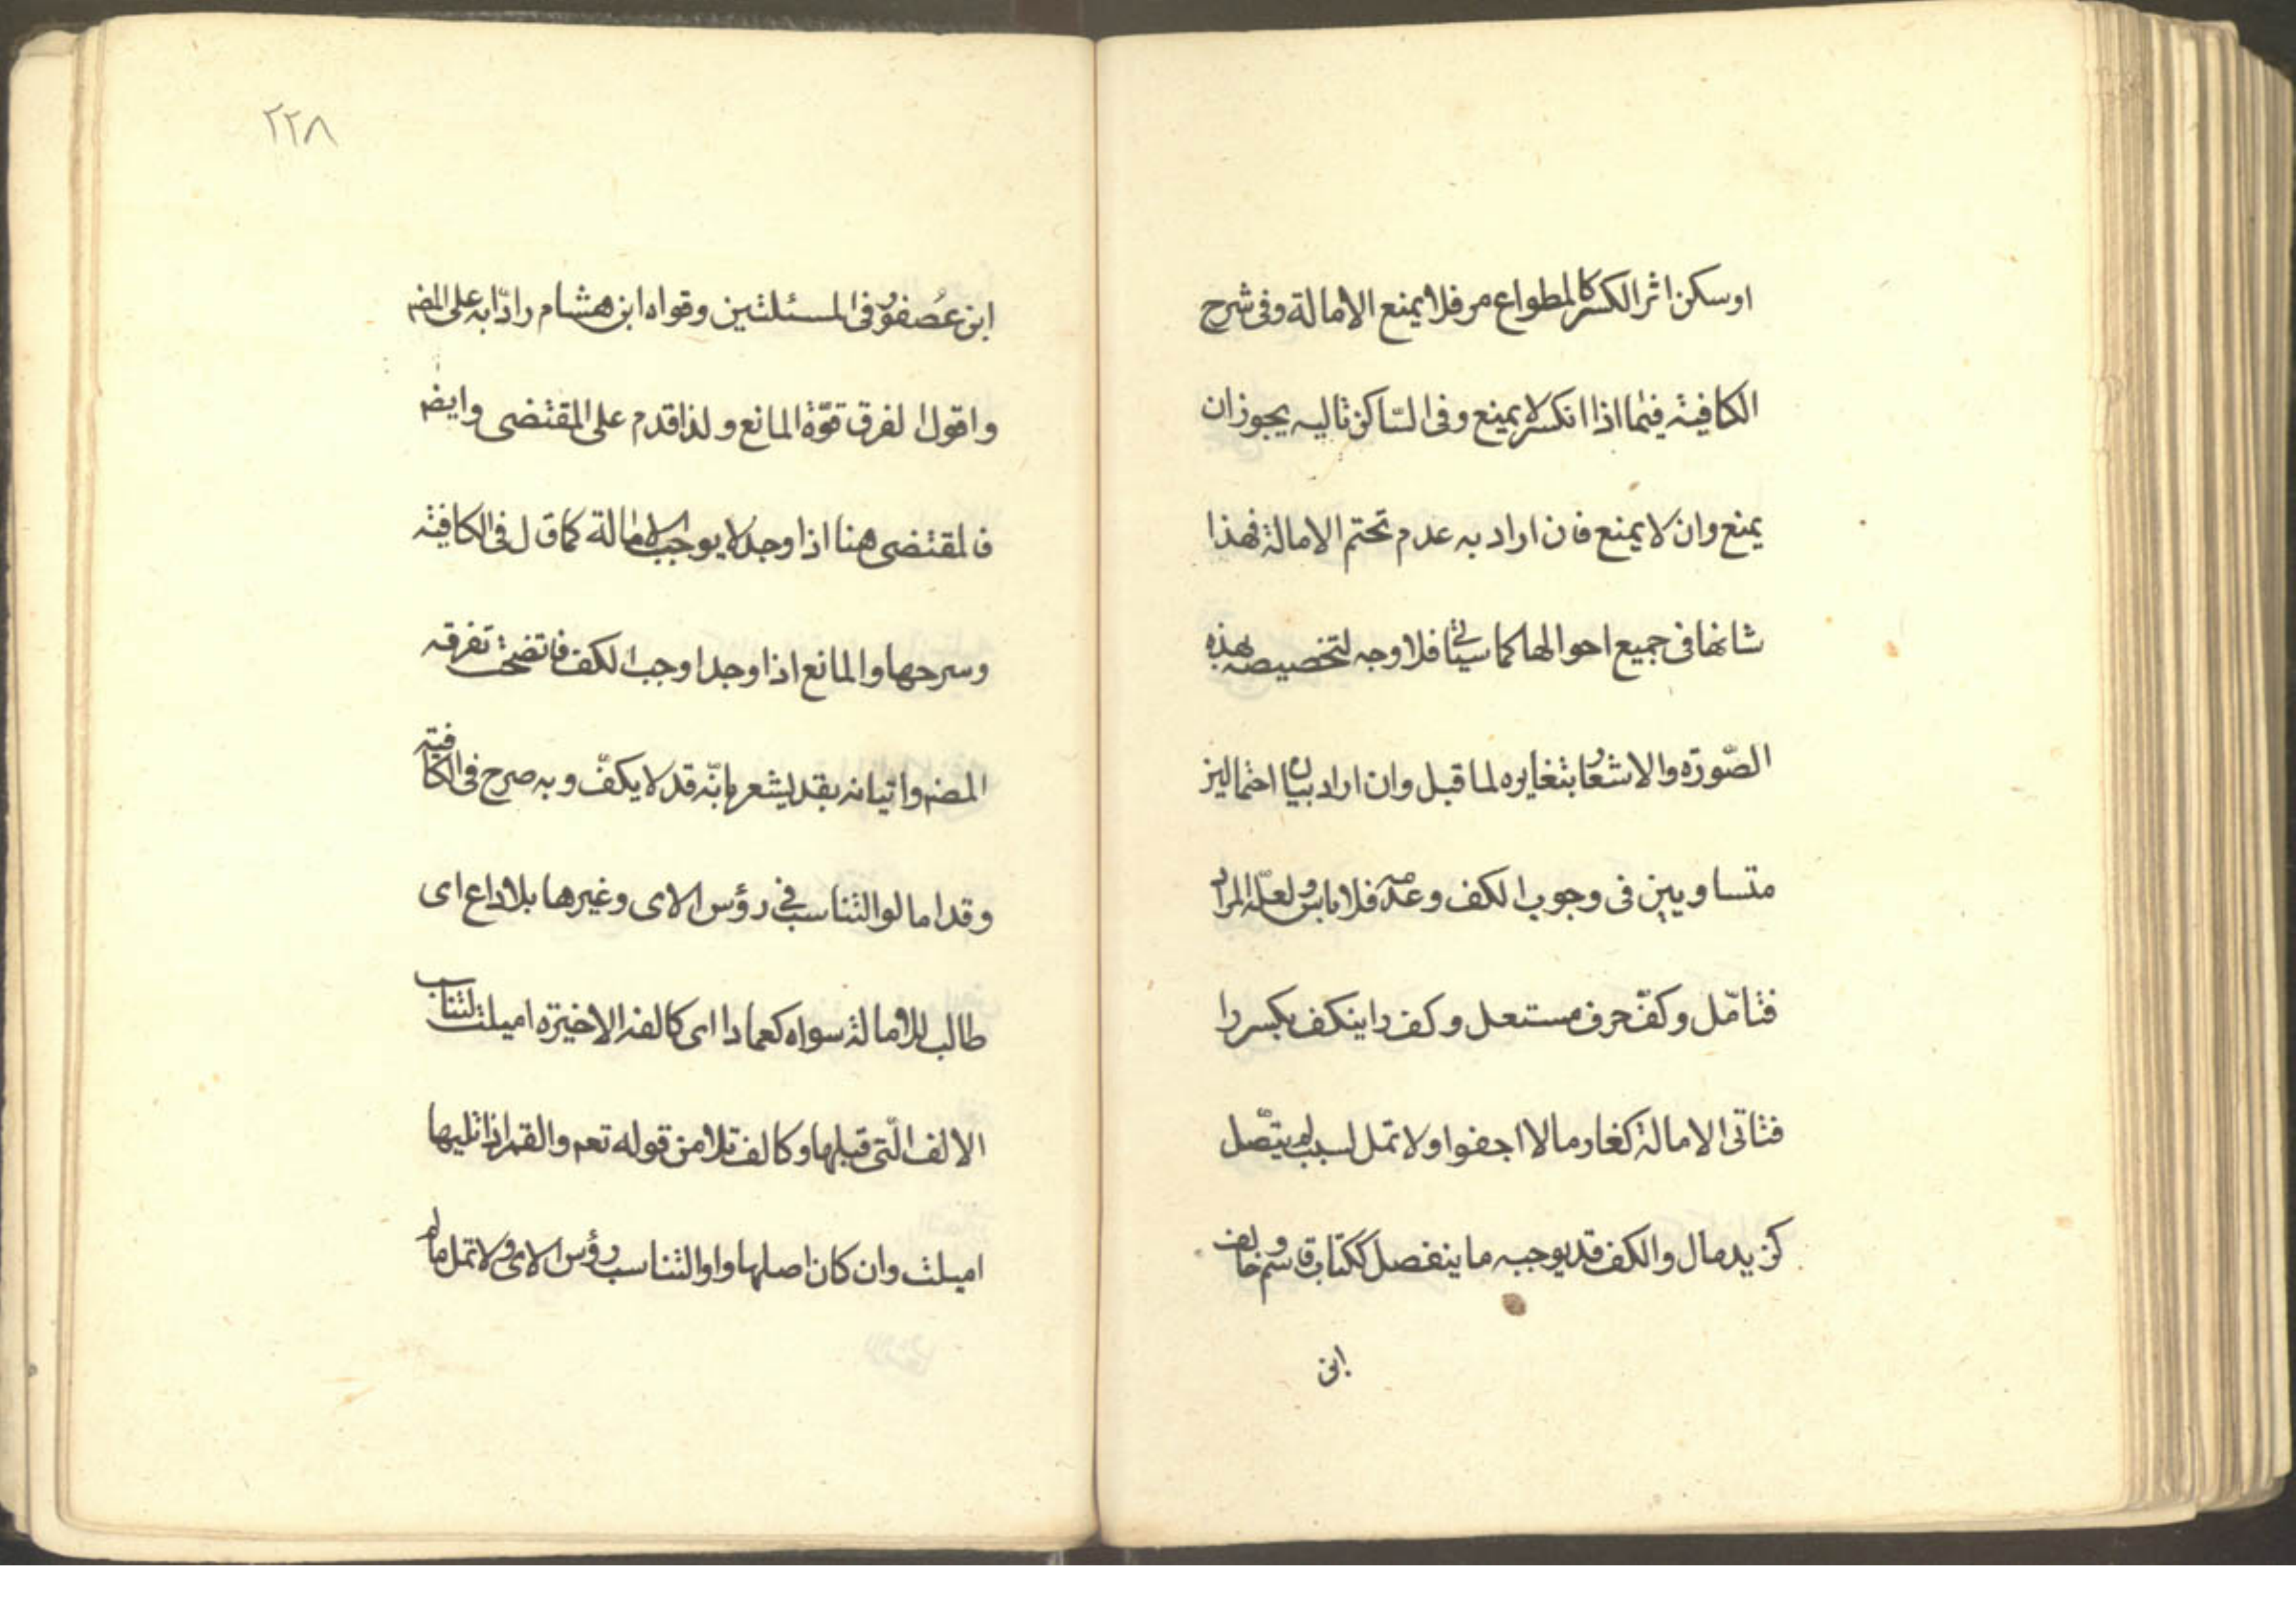 اوسكن اثر الكسر كالمطواع مر فلا يمنع الامالة وفى شرح
الكافية فيما اذا انكسر لا يمنع وفى السّاكن تاليه يجوز ان
يمنع وان لا يمنع فان اراد به عدم تحتم الامالة فهذا
شانها فى جميع احوالها كما سيأتى فلا وجه لتخصيصه بهذه
الصّورة والاشعار بتغايره لما قبل وان اراد بيان احتمالين
متساويين فى وجوب الكف وعدمه فلا باس ولعلّه المراد
فتامّل وكفّ حرف مستعل وكف را ينكف بكسر را
فتاتى الامالة كغارما لا اجفوا ولا تمل لسبب لم يتّصل
كزيد مال والكف قد يوجبه ما ينفصل ككتاب قاسم وخالف
ابن
٢٢٨
ابن عُصفور فى المسئلتين وقواه ابن هشام رادّا به على المض
واقول الفرق قوّة المانع ولذا قدم على المقتضى وايض
فالمقتضى هنا اذا وجد لا يوجب الامالة كما قال فى الكافية
وسرحها والمانع اذا وجد اوجب الكف فاتضحت تفرقه
المض واتيانه بقد يشعر بانّه قد لا يكفّ وبه صرح فى الكافية
وقد امالوا لتناسب فى رؤس الاى وغيرها بلا داع اى
طالب للامالة سواه كعمادا اى كالفه الاخيرة اميلت لتناسب
الالف الّتى قبلها وكالف تلا من قوله تعم والقمر اذا تليها
اميلت وان كان اصلها واوا لتناسب رؤس الاى ولا تمل ما لم